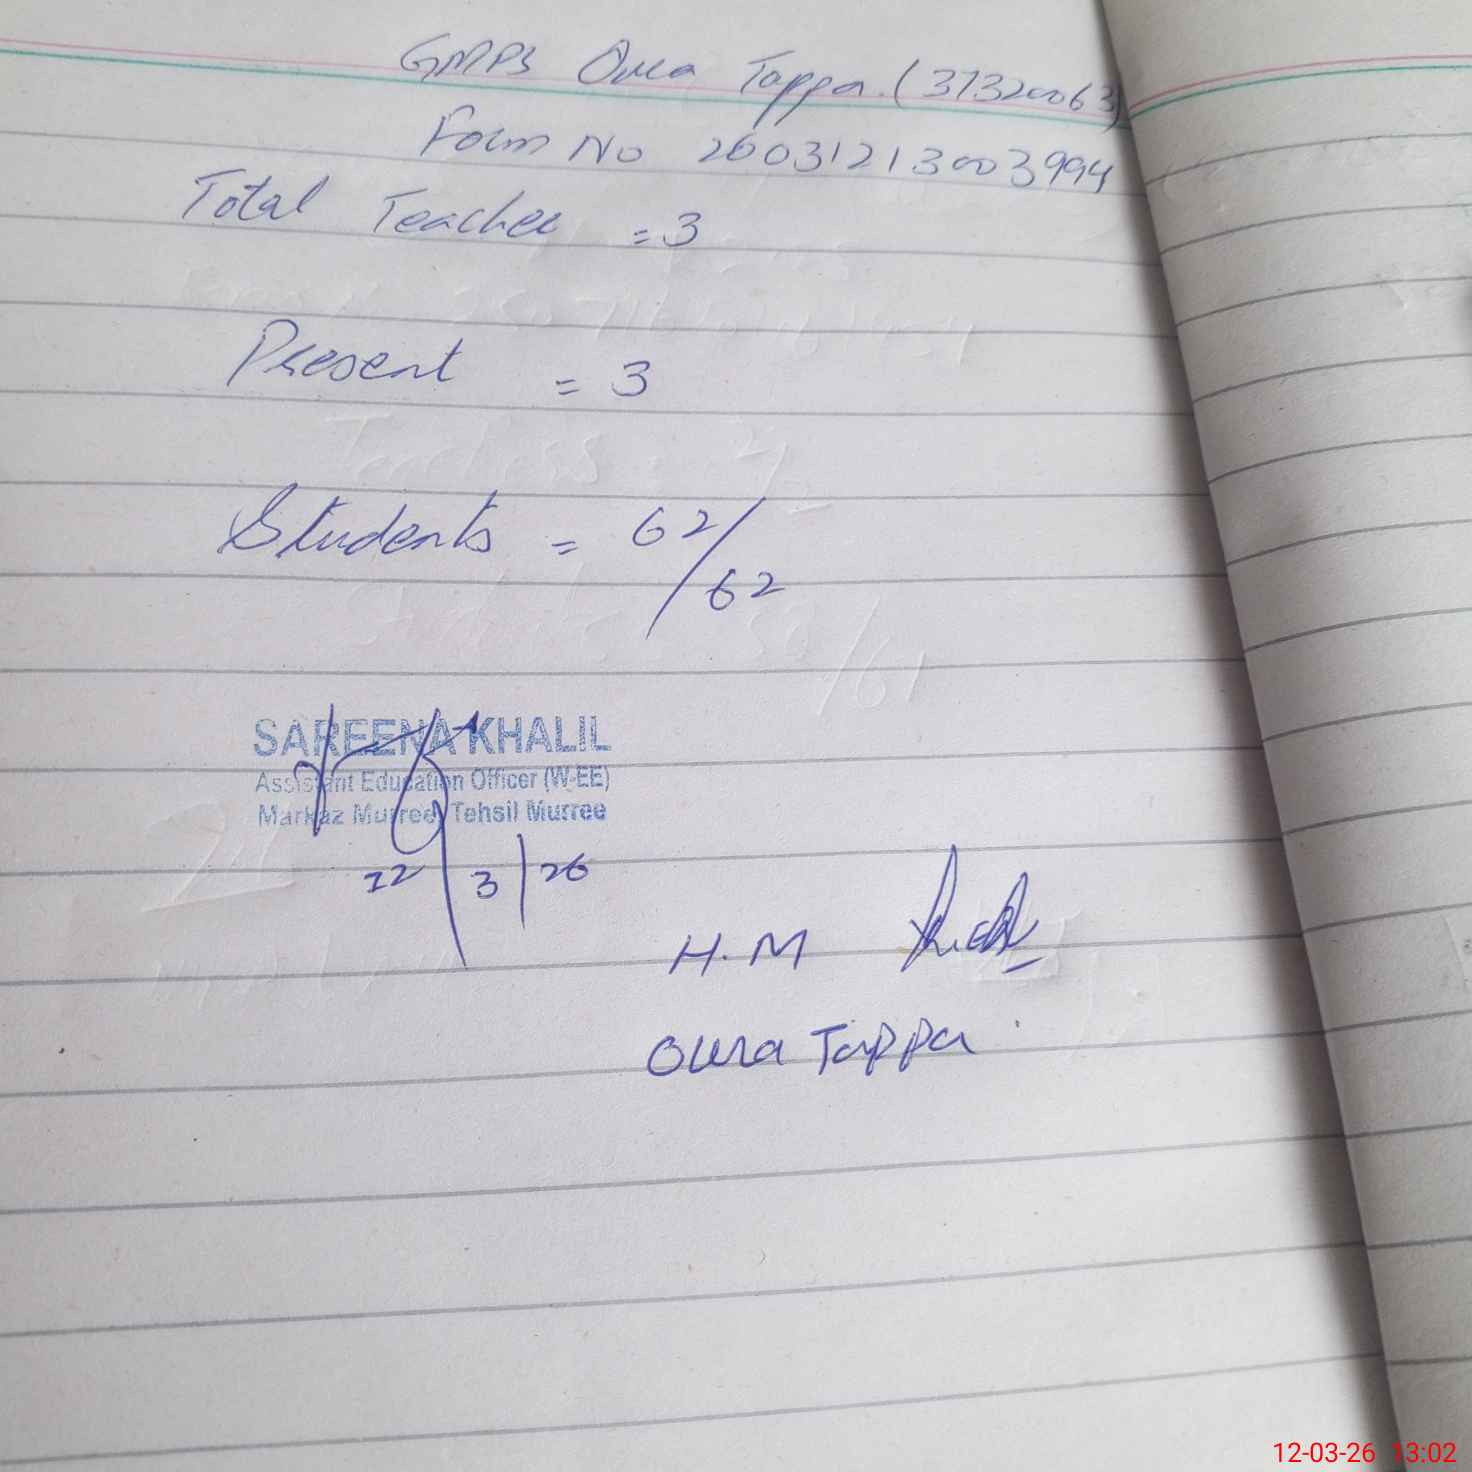 GMPS Oura Tappa. (37320063)
Form No 26031213003994
Total Teacher = 3
Present = 3
Students = 62/62
SAREENA KHALIL
Assistant Education Officer (W-EE)
Markaz Murree Tehsil Murree
12/3/26
H.M
Oura Tappa
12-03-26 13:02